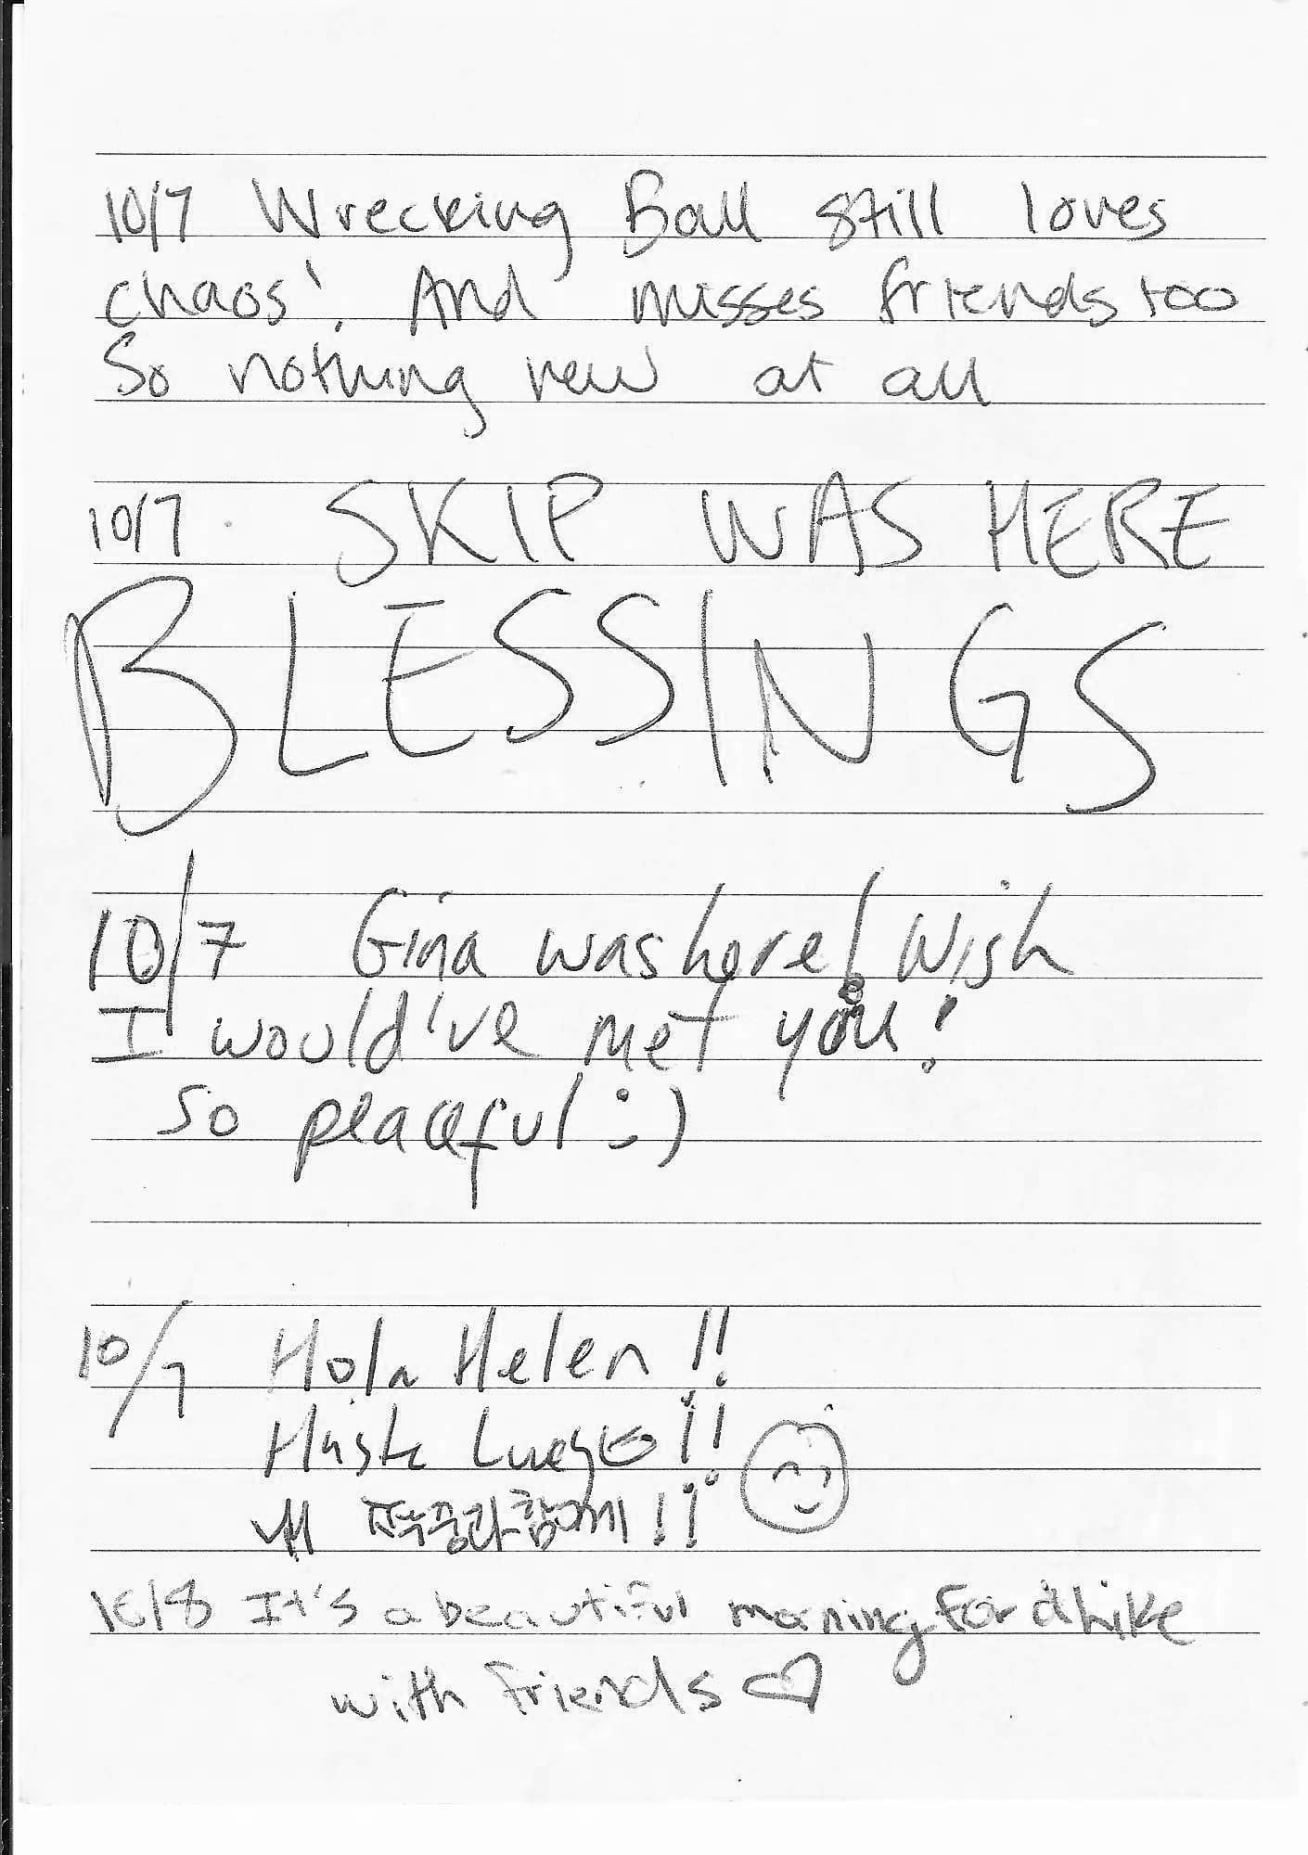 10/7 Wrecking Ball still loves
chaos! And misses friends too
So nothing new at all
10/7 SKIP WAS HERE
BLESSINGS
10/7 Gina was here! Wish
I would've met you!
so peaceful :)
10/7 Hola Helen !!
Luego !!
!!
10/8 It's a beautiful morning for a hike
with friends ♡